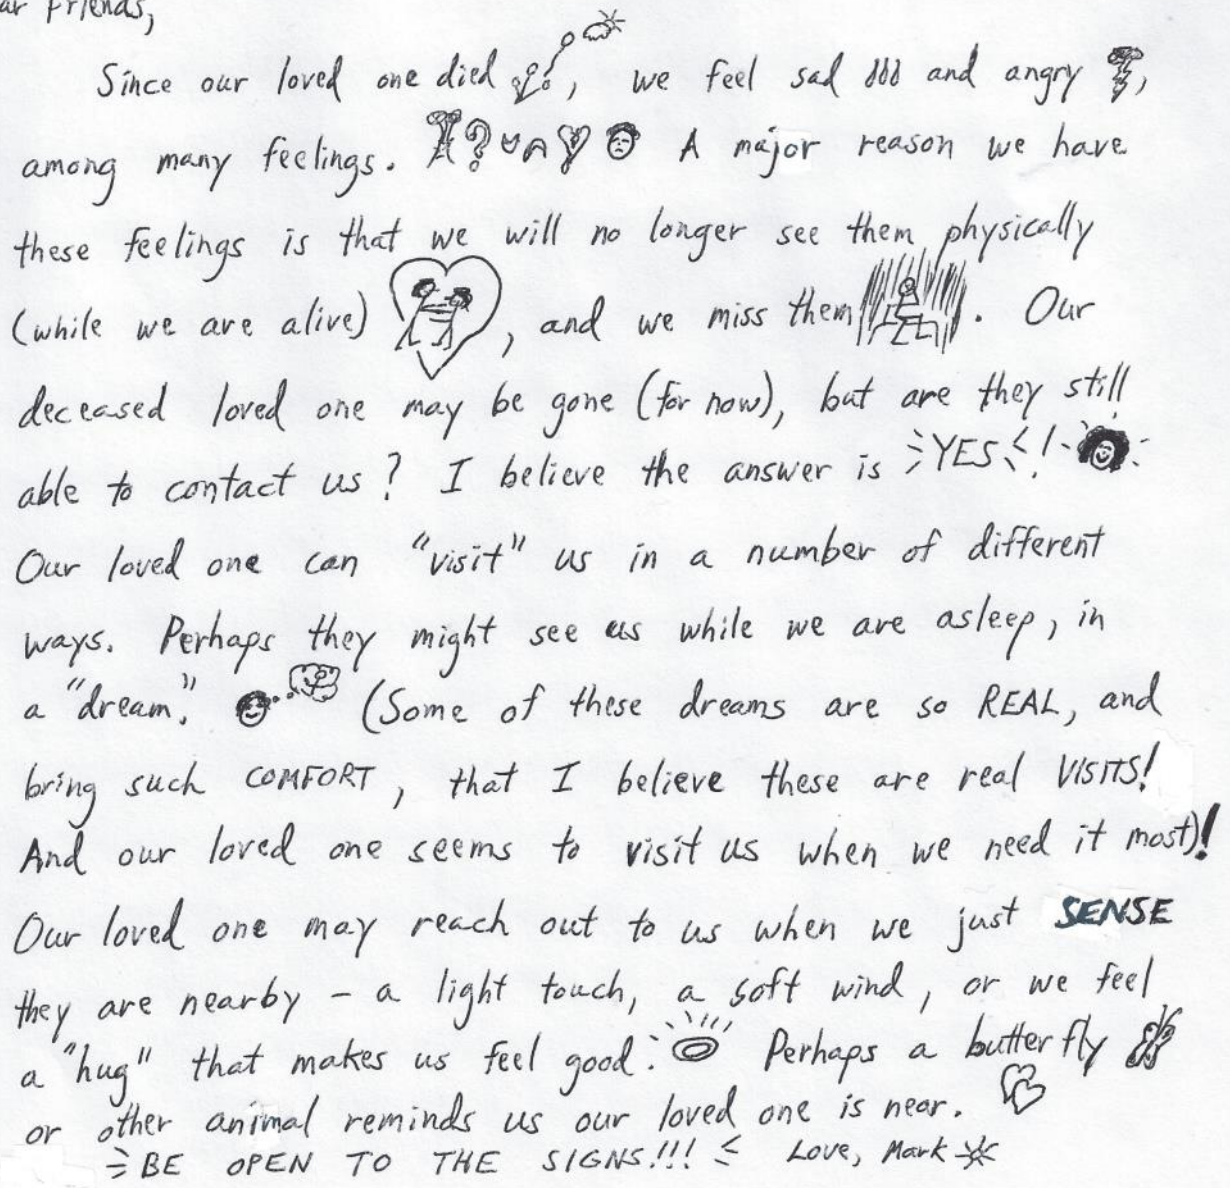 ar Friends,
Since our loved one died, we feel sad and angry,
among many feelings. ? A major reason we have
these feelings is that we will no longer see them physically
(while we are alive), and we miss them. Our
deceased loved one may be gone (for now), but are they still
able to contact us? I believe the answer is YES!
Our loved one can "visit" us in a number of different
ways. Perhaps they might see us while we are asleep, in
a "dream." (Some of these dreams are so REAL, and
bring such COMFORT, that I believe these are real VISITS!
And our loved one seems to visit us when we need it most)!
Our loved one may reach out to us when we just SENSE
they are nearby - a light touch, a soft wind, or we feel
a "hug" that makes us feel good. Perhaps a butterfly
or other animal reminds us our loved one is near.
BE OPEN TO THE SIGNS!!! Love, Mark